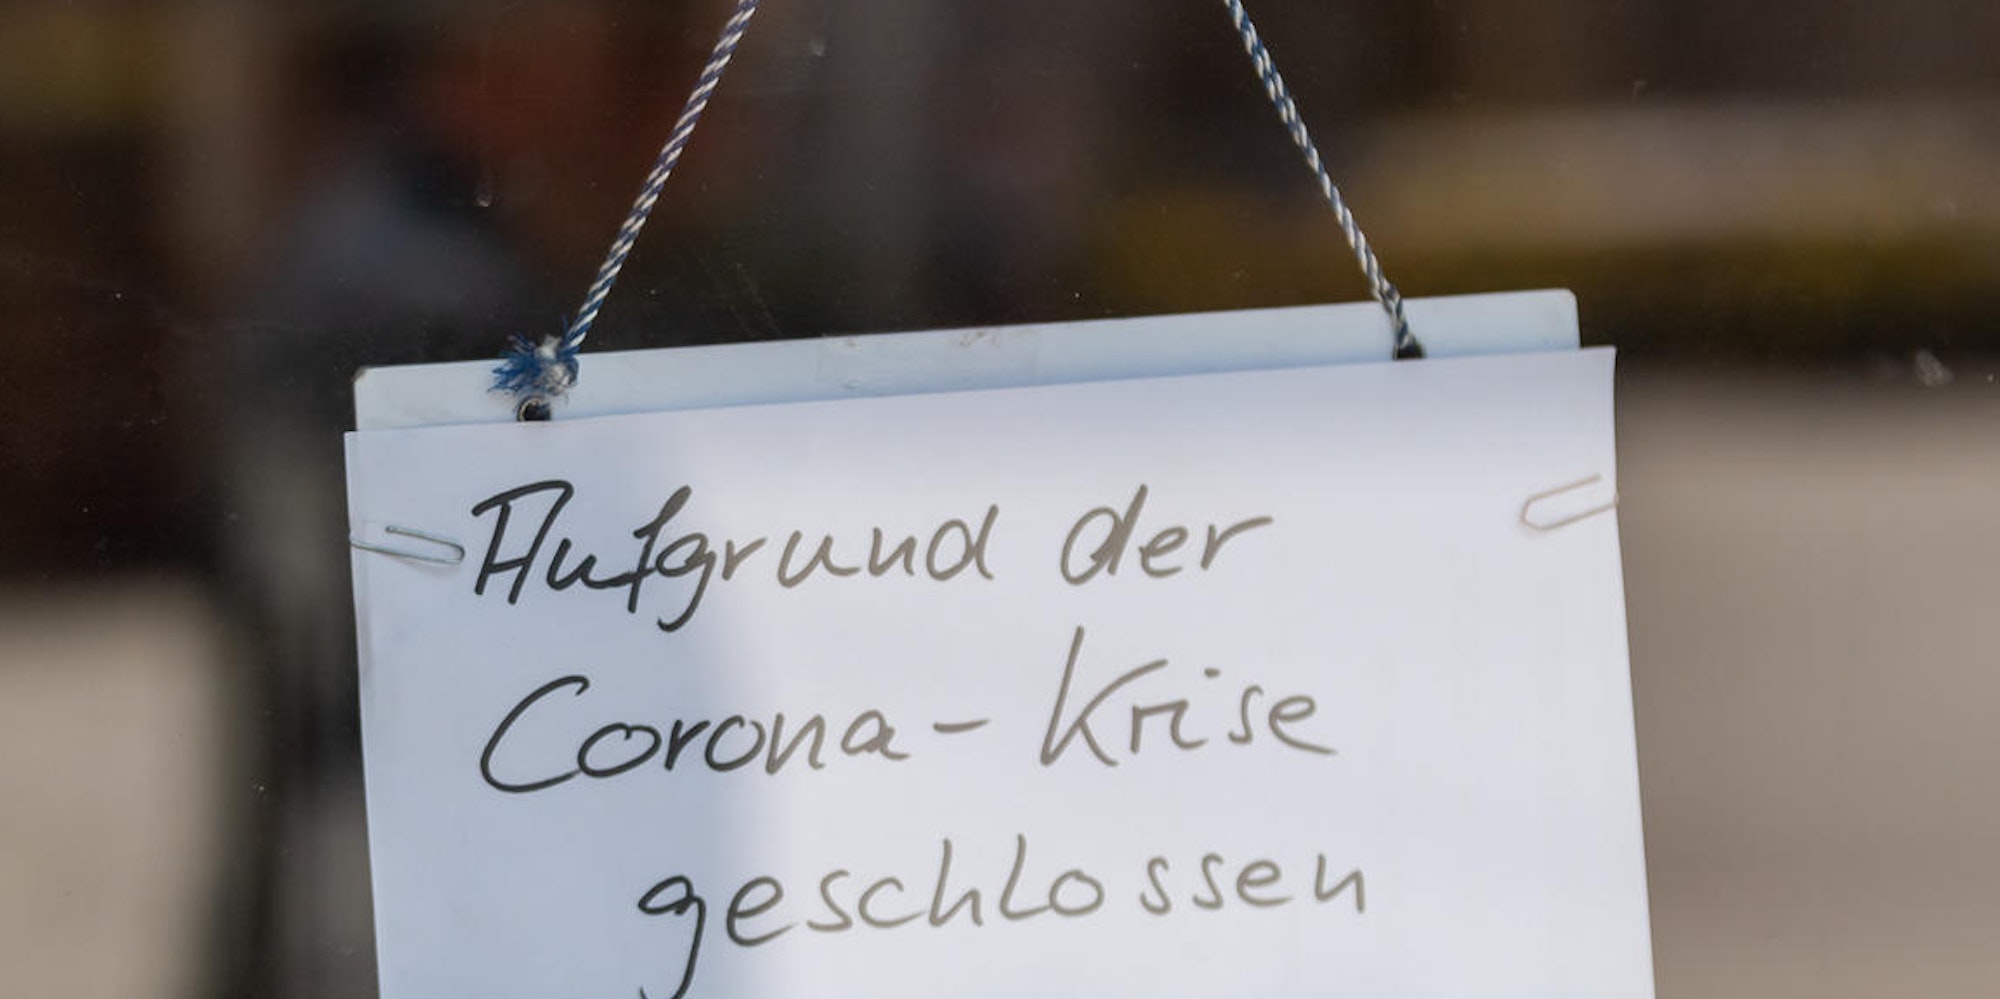 Aufgrund der
Corona-Krise
geschlossen